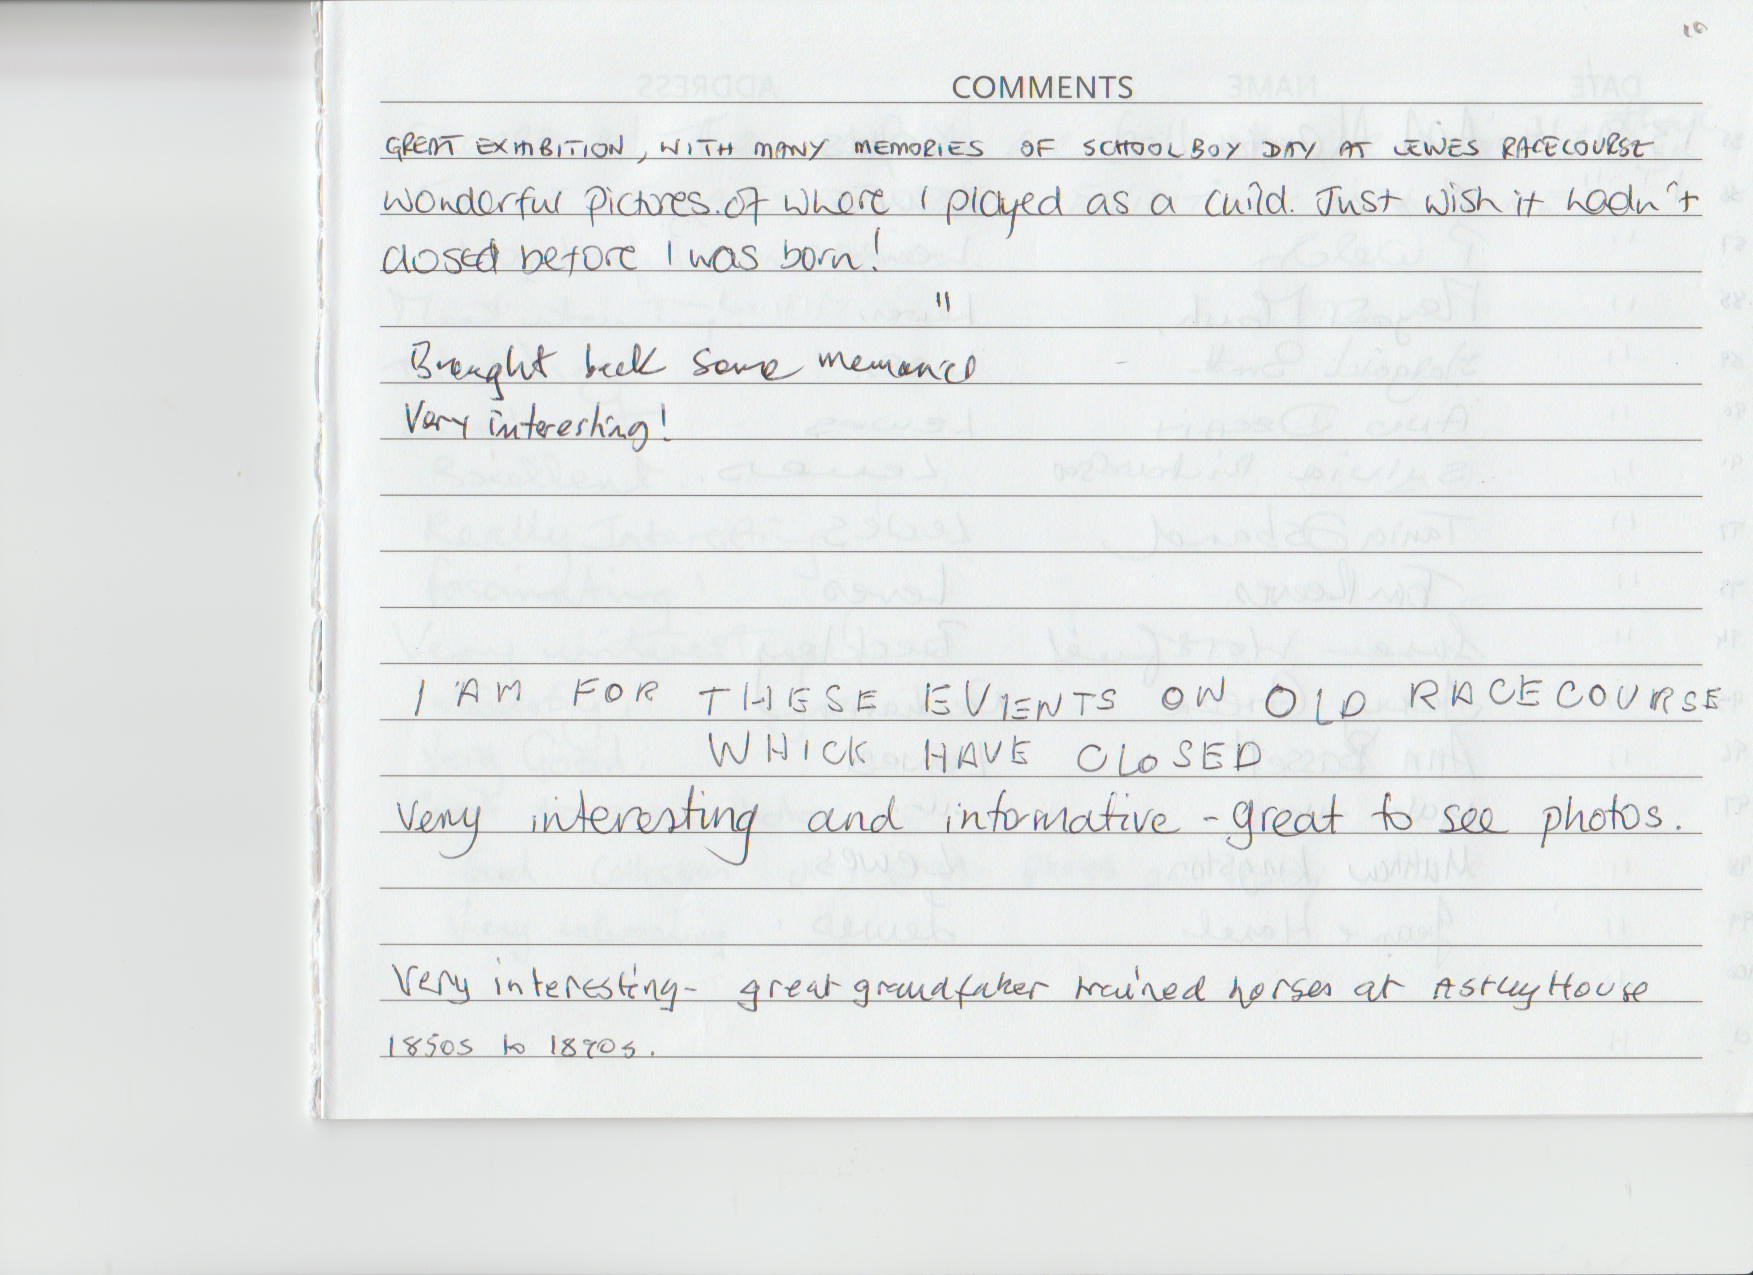 10
COMMENTS
GREAT EXHIBITION, WITH MANY MEMORIES OF SCHOOLBOY DAY AT LEWES RACECOURSE
Wonderful pictures of where I played as a child. Just wish it hadn't
closed before I was born!
"
Brought back some memories
Very interesting!
I AM FOR THESE EVIENTS ON OLD RACECOURSE
WHICK HAVE CLOSED
Very interesting and informative - great to see photos.
Very interesting - great grandfather trained horses at Astley House
1850s to 1890s.